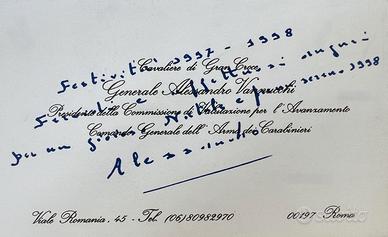 Festività 1997 - 1998
Cavaliere di Gran Croce
Generale Alessandro Vannucchi
Felicità e affettuosi auguri
Presidente della Commissione di Valutazione per l'Avanzamento
per un Natale e per 1998
Comando Generale dell'Arma dei Carabinieri
Alessandro
Viale Romania, 45 - Tel. (06) 80982970
00197 Roma
subito